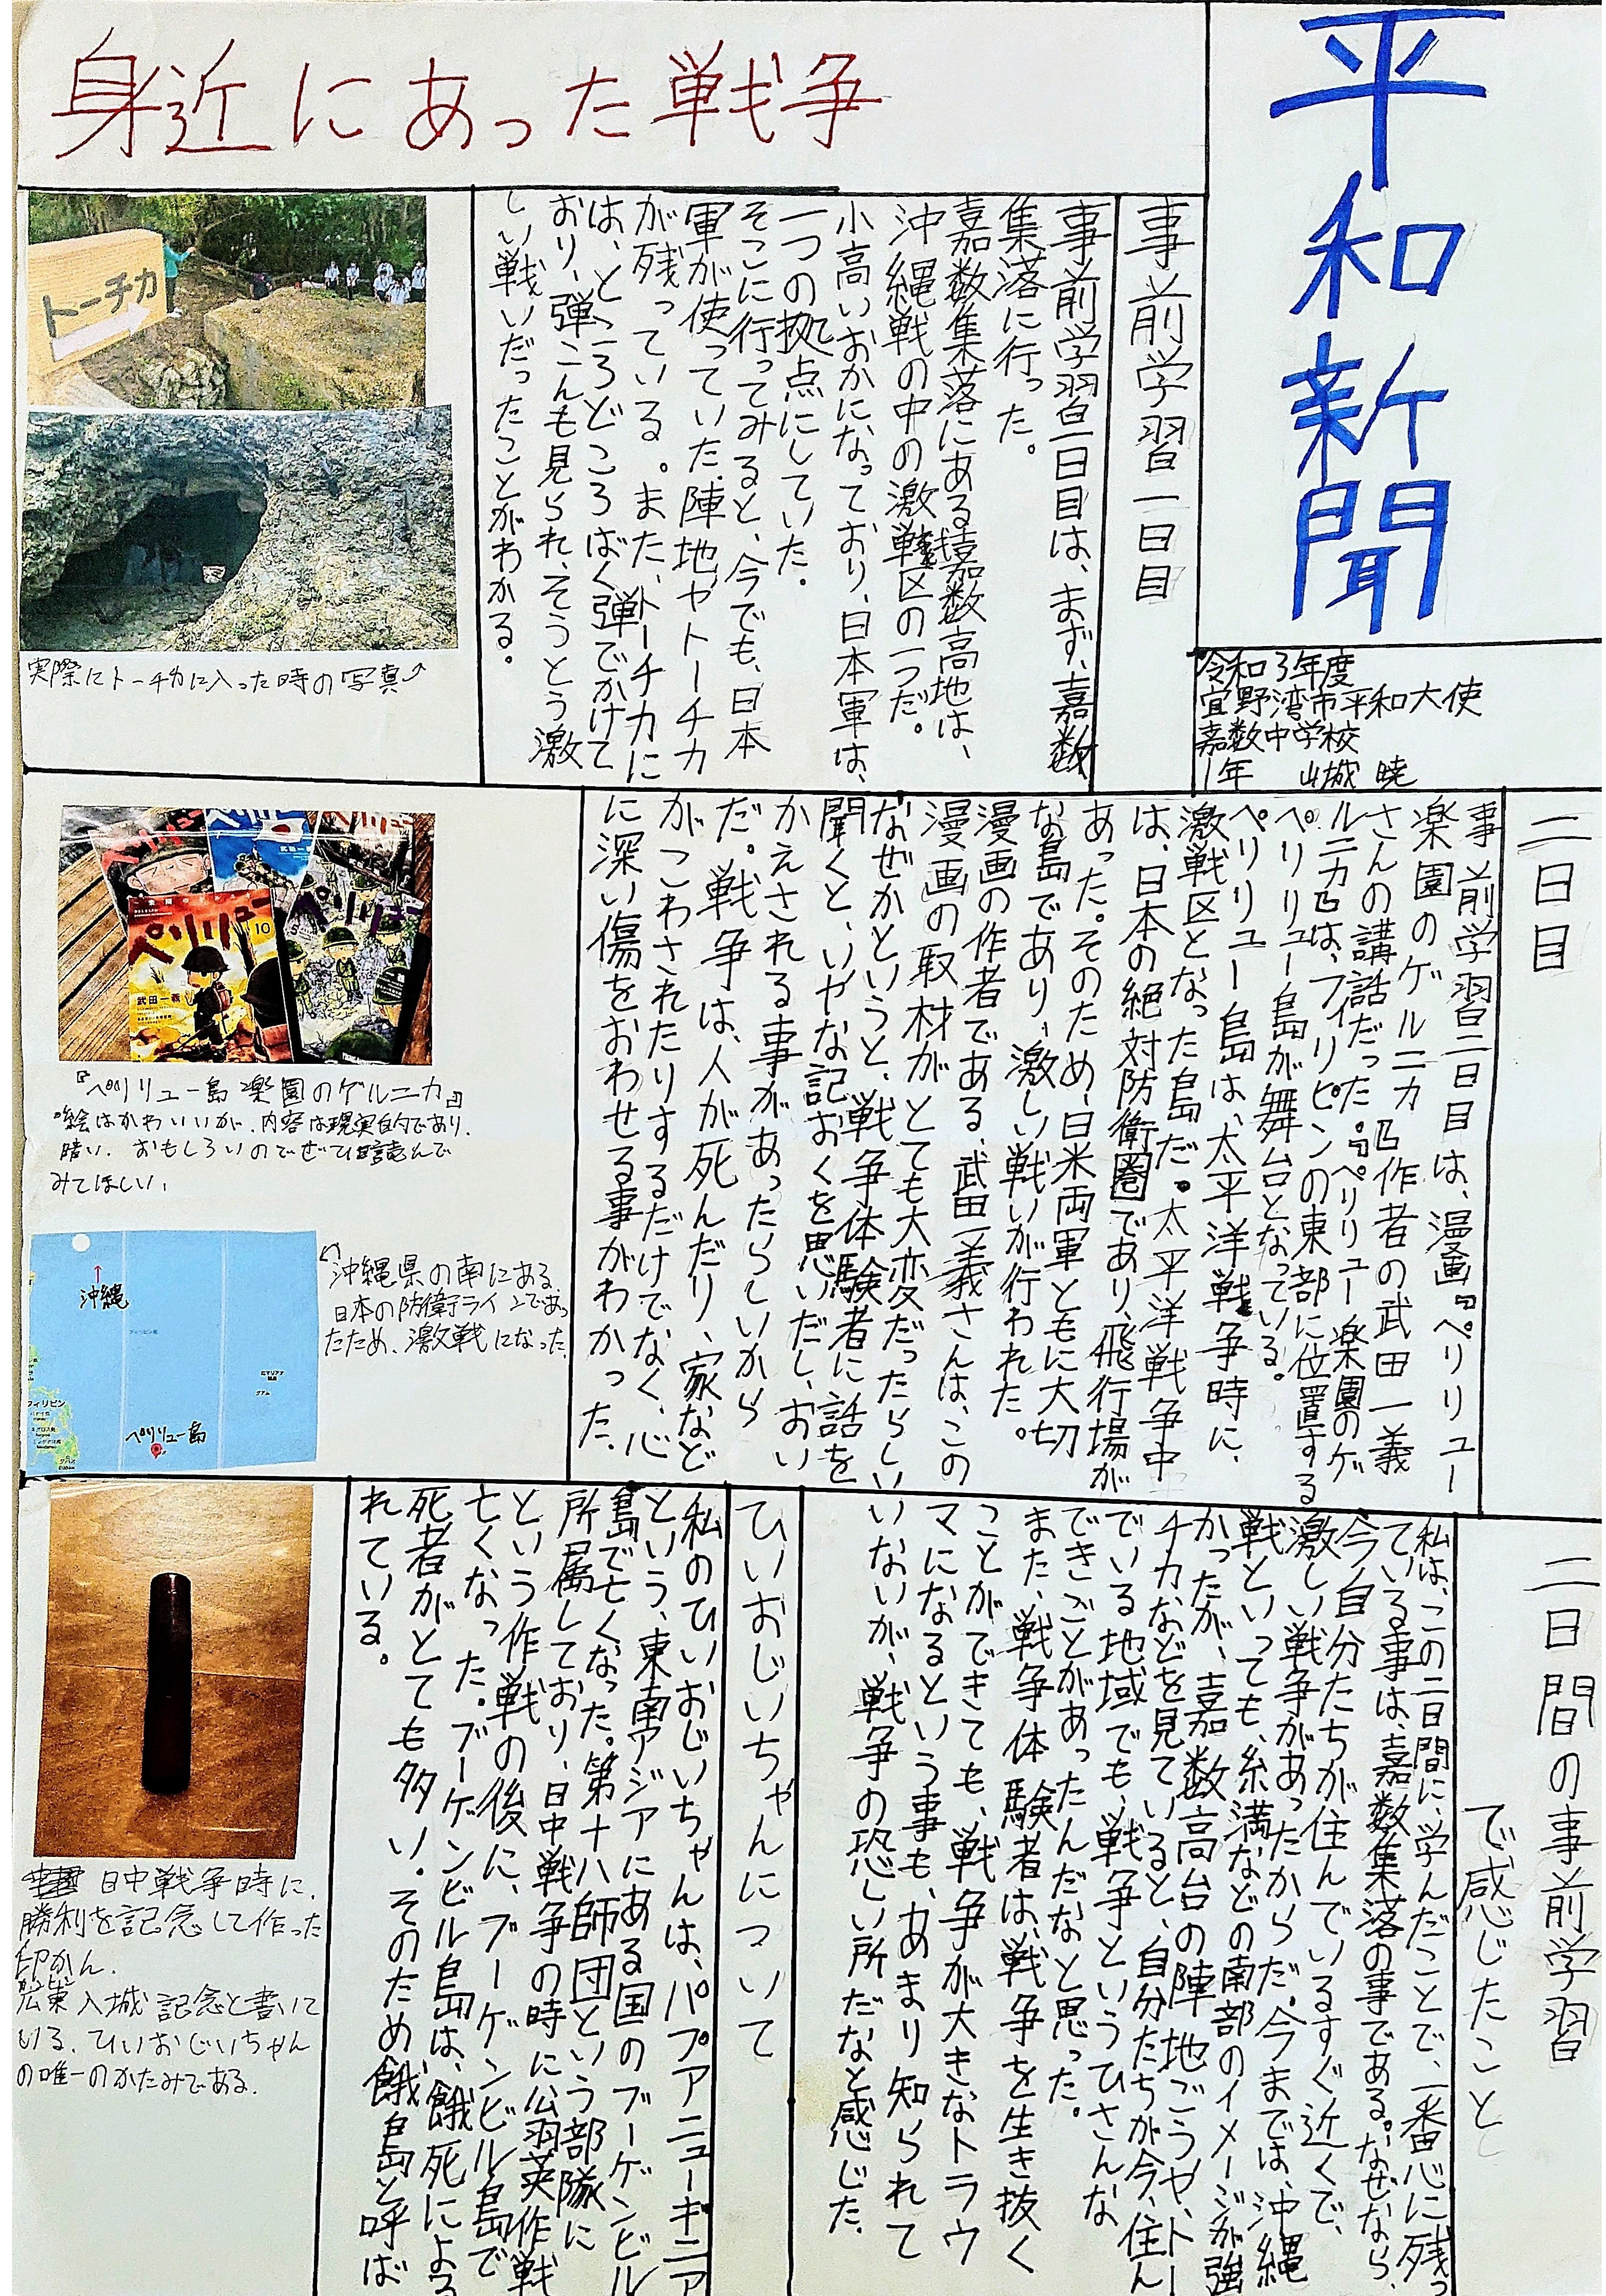 平和新聞
令和3年度
宜野湾市平和大使
嘉数中学校
1年 山城 暁
身近にあった戦争
事前学習一日目
事前学習一日目は、まず、嘉数
集落に行った。
嘉数集落にある嘉数高地は、
沖縄戦の中の激戦区の一つだ。
小高いおかになっており、日本軍は、
一つの拠点にしていた。
そこに行ってみると、今でも、日本
軍が使っていた陣地やトーチカ
が残っている。また、トーチカに
は、ところどころばく弾でかけて
おり、弾こんも見られ、そうとう激
しい戦いだったことがわかる。
トーチカ
実際にトーチカに入った時の写真
二日目
事前学習二日目は、漫画『ペリリュー
楽園のゲルニカ』作者の武田一義
さんの講話だった。『ペリリュー楽園のゲ
ルニカ』は、フィリピンの東部に位置する
ペリリュー島が舞台となっている。
ペリリュー島は、太平洋戦争時に、
激戦区となった島だ。太平洋戦争中
は、日本の絶対防衛圏であり、飛行場が
あった。そのため、日米両軍ともに大切
な島であり、激しい戦いが行われた。
漫画の作者である、武田一義さんは、この
漫画の取材がとても大変だったらしい
なぜかというと、戦争体験者に話を
聞くと、いやな記おくを思いだし、おい
かえされる事があったらしいから
だ。戦争は、人が死んだり、家など
がこわされたりするだけでなく、心
に深い傷をおわせる事がわかった。
ペリリュー
10
武田一義
『ペリリュー島 楽園のゲルニカ』
・絵はかわいいが、内容は現実的であり、
暗い。おもしろいのでぜひ読んで
みてほしい。
沖縄県の南にある、
日本の防衛ラインであっ
たため、激戦になった。
沖縄
フィリピン海
北マリアナ
諸島
グアム
フィリピン
ペリリュー島
パラオ
二日間の事前学習
で感じたこと
私は、この二日間に、学んだことで、一番心に残っ
ている事は、嘉数集落の事である。なぜなら、
今、自分たちが住んでいるすぐ近くで、
激しい戦争があったからだ。今までは、沖縄
戦といっても、糸満などの南部のイメージが強
かったが、嘉数高台の陣地ごうや、トー
チカなどを見ていると、自分たちが今、住ん
でいる地域でも、戦争というひさんな
できごとがあったんだなと思った。
また、戦争体験者は、戦争を生き抜く
ことができても、戦争が大きなトラウ
マになるという事も、あまり知られて
いないが、戦争の恐しい所だなと感じた。
ひいおじいちゃんについて
私のひいおじいちゃんは、パプアニューギニア
という、東南アジアにある国のブーゲンビル
島で亡くなった。第十八師団という部隊に
所属しており、日中戦争の時に公羽英作戦
という作戦の後に、ブーゲンビル島で
亡くなった。ブーゲンビル島は、餓死による
死者がとても多い。そのため餓島と呼ば
れている。
日中戦争時に、
勝利を記念して作った
印かん。
広東入城記念と書いて
いる。ひいおじいちゃん
の唯一のかたみである。